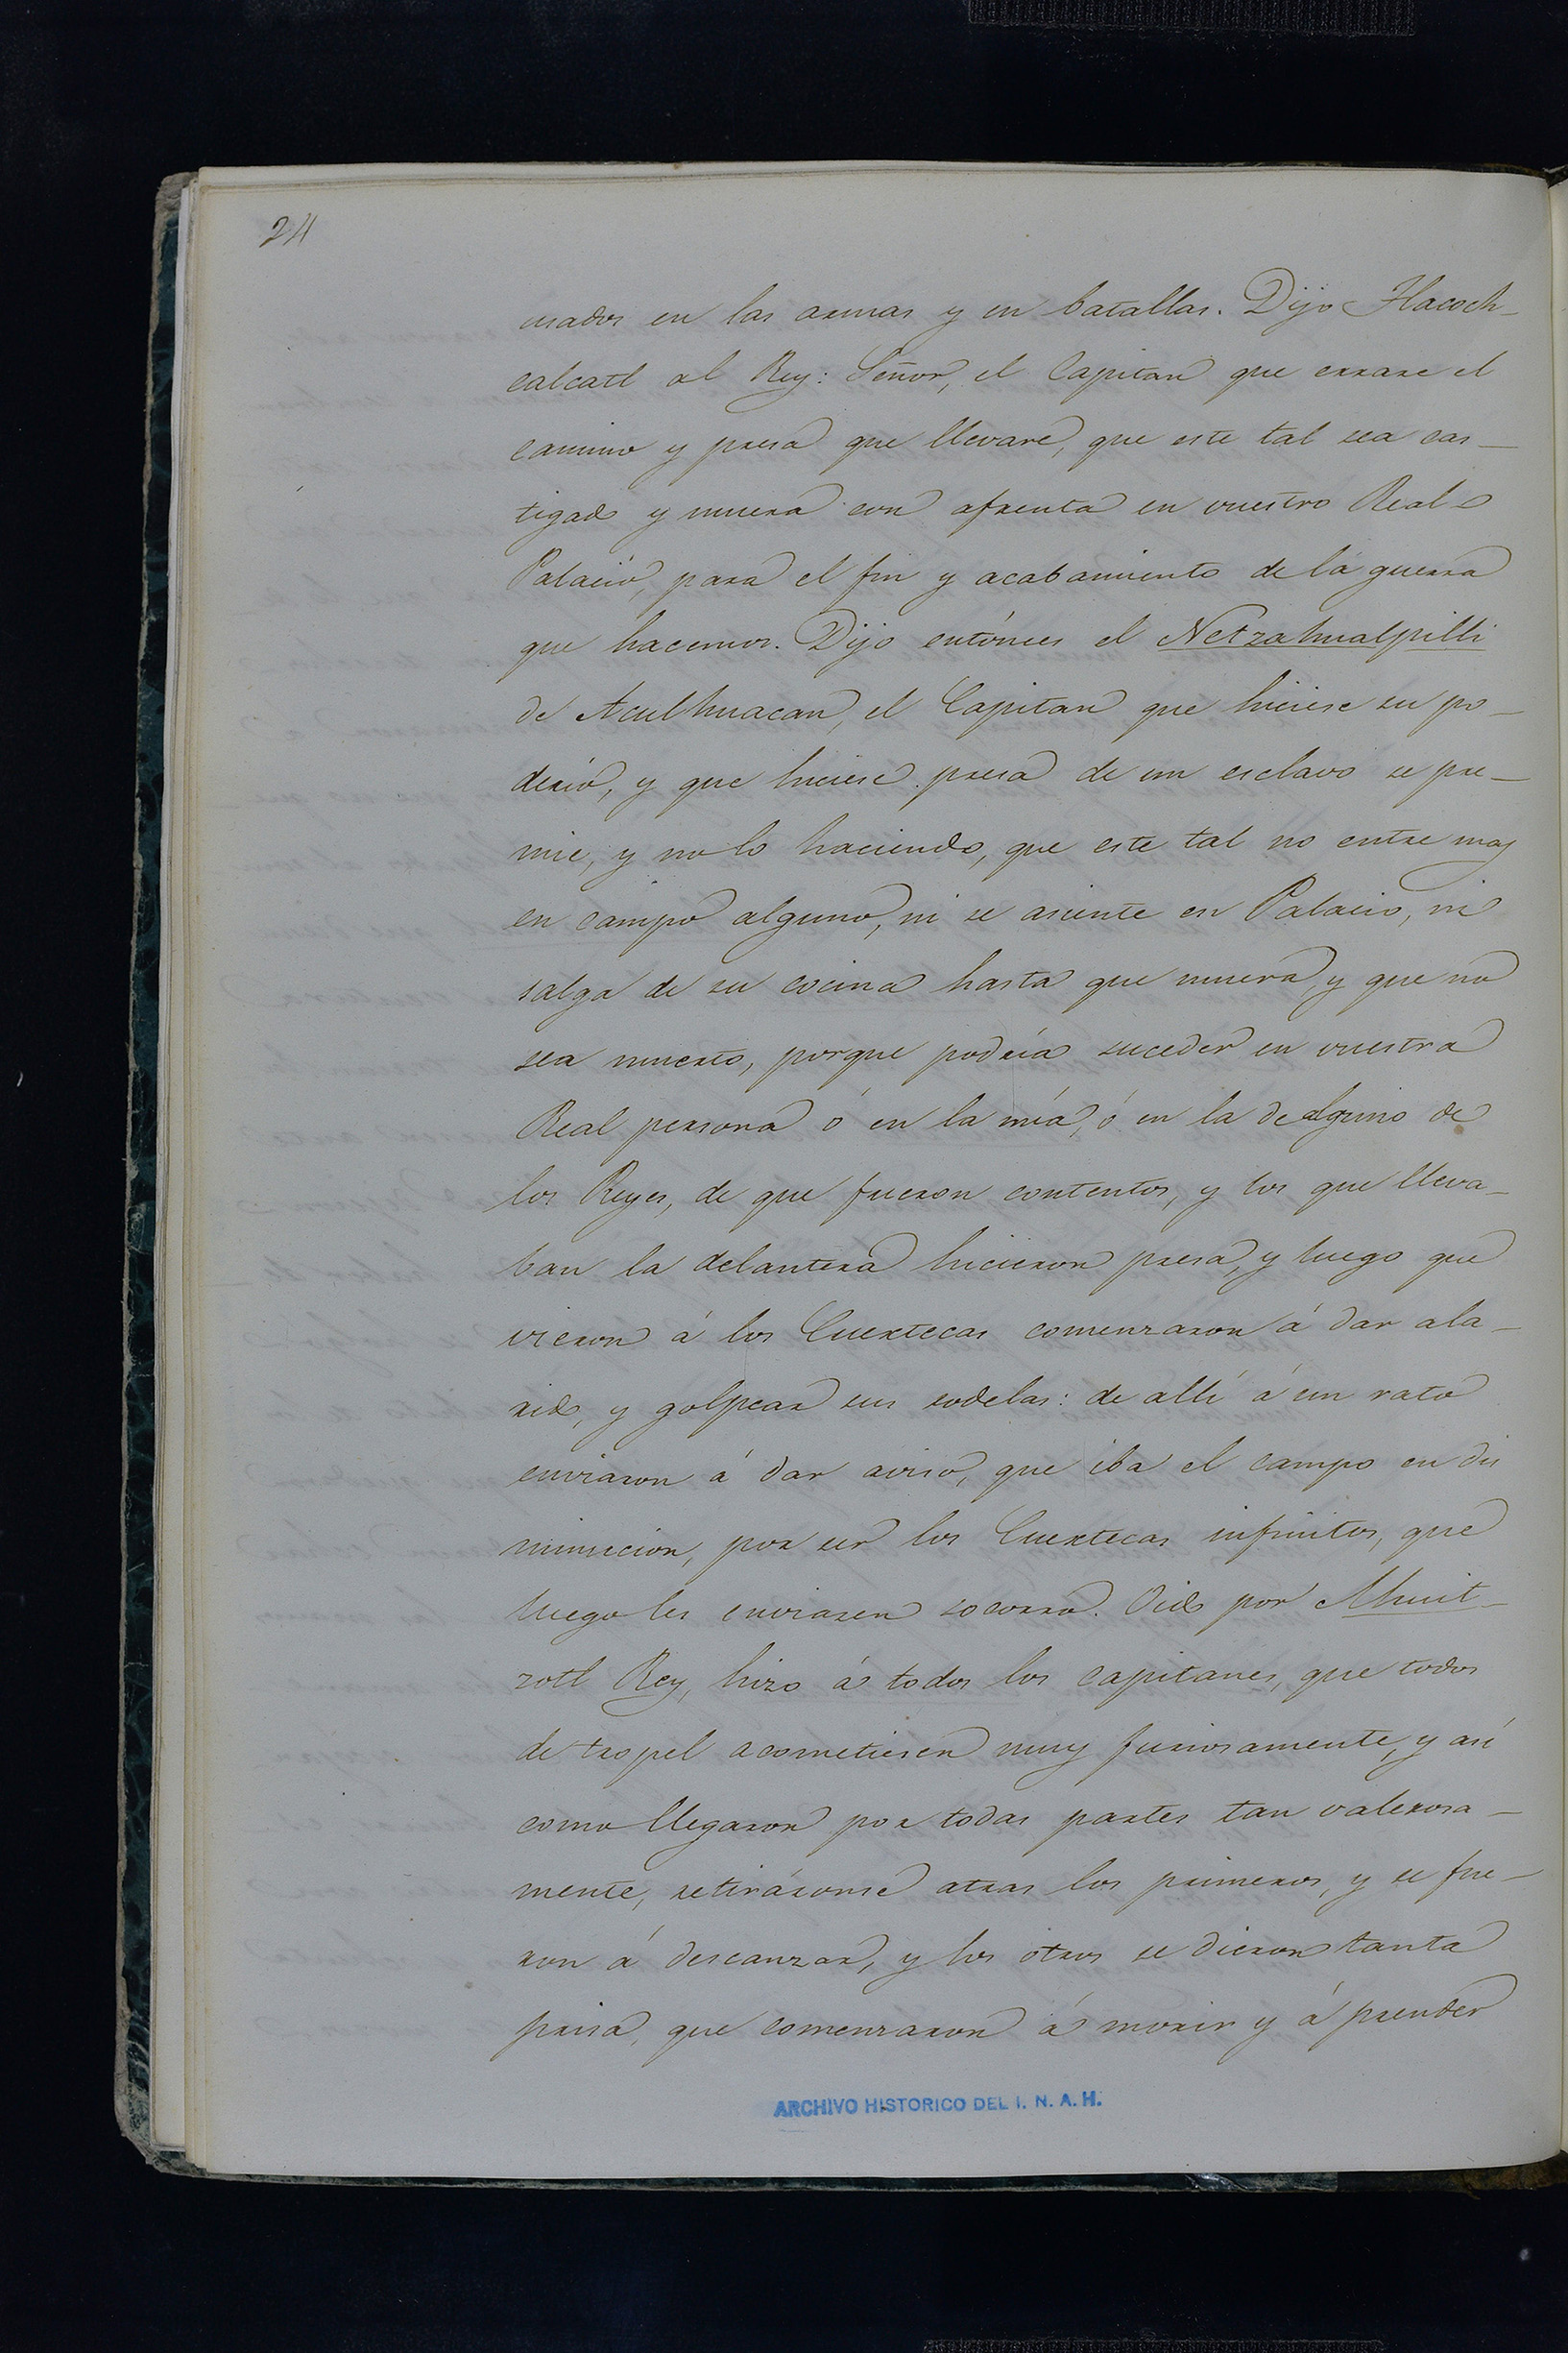 24
usados en las armas y en batallas. Dijo Tlacoch-
calcatl al Rey: Señor, el Capitan que errare el
camino y presa que llevare, que este tal sea cas-
tigado y muera con afrenta en vuestro Real
Palacio, para el fin y acabamiento de la guerra
que hacemos. Dijo entónces el Netzahualpilli
de Aculhuacan, el Capitan que hiciese su po-
derio, y que hiciese presa de un esclavo se pre-
mie, y no lo haciendo, que este tal no entre mas
en campo alguno, ni se asiente en Palacio, ni
salga de su cocina hasta que muera, y que no
sea muerto, porque podria suceder en vuestra
Real persona ó en la mía, ó en la de alguno de
los Reyes, de que fueron contentos, y los que lleva-
ban la delantera hicieron presa, y luego que
vieron á los Cuextecas comenzaron á dar ala-
rido, y golpear sus rodelas: de allí á un rato
enviaron á dar aviso, que iba el campo en dis
minucion, por ser los Cuextecas infinitos, que
luego les enviasen socorro. Oido por Ahuit-
zotl Rey, hizo á todos los capitanes, que todos
de tropel acometiesen muy furiosamente, y así
como llegaron por todas partes tan valerosa-
mente, retiráronse atras los primeros, y se fue-
ron á descanzar, y los otros se dieron tanta
prisa, que comenzaron á morir y á prender
ARCHIVO HISTORICO DEL I. N. A. H.